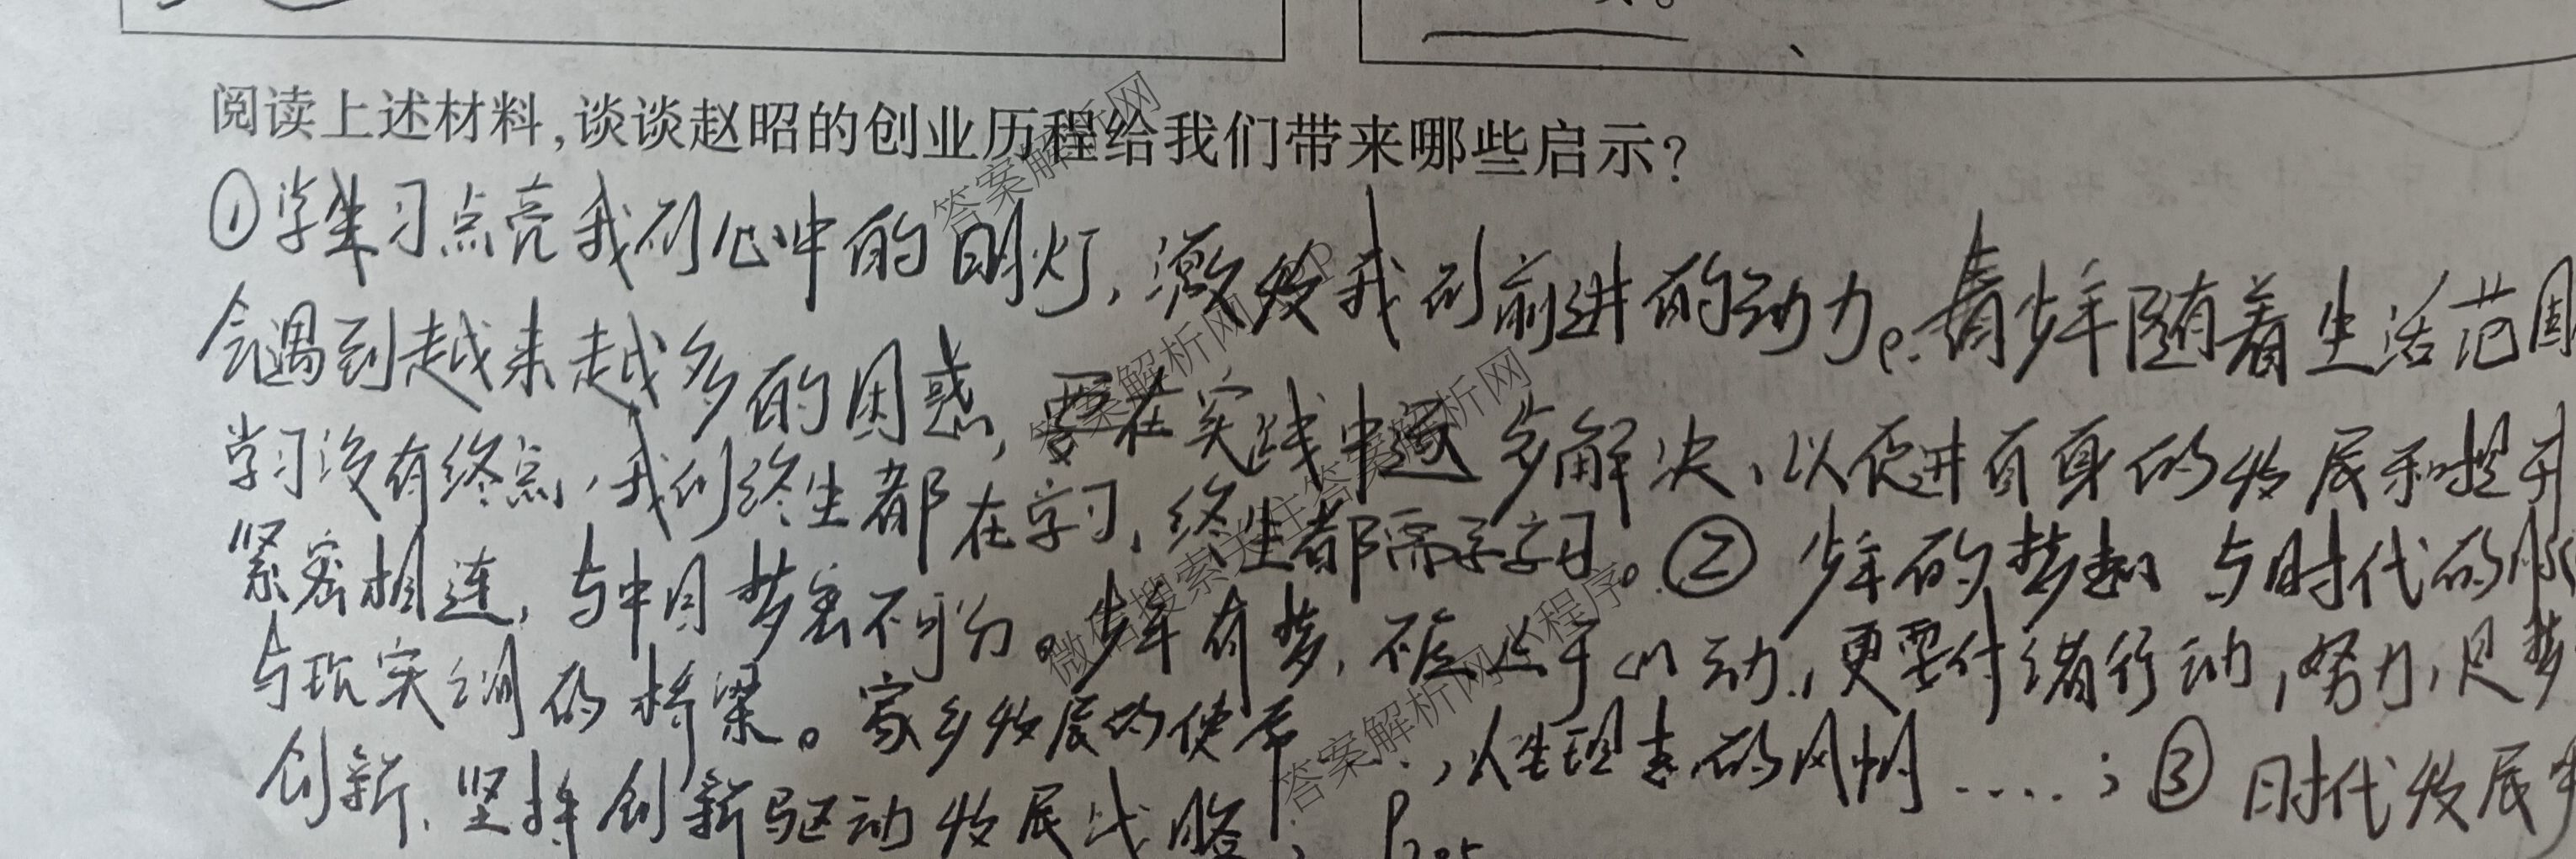 阅读上述材料,谈谈赵昭的创业历程给我们带来哪些启示?
①学习点亮我们心中的明灯,激发我们前进的动力。青少年随着生活范围
会遇到越来越多的困惑,要在实践中逐步解决,以促进自身的发展和提升
学习没有终点,我们终生都在学习,终生都需要学习。②少年的梦想 与时代的脉
紧密相连,与中国梦密不可分。少年有梦,不应止于心动,更要付诸行动,努力,是梦
与现实之间的桥梁。家乡发展的使命 ,人生理想的风帆……;③时代发展
创新,坚持创新驱动发展战略;
答案解析网
答案解析网
答案解析网
微信搜索关注答案解析网
答案解析网小程序